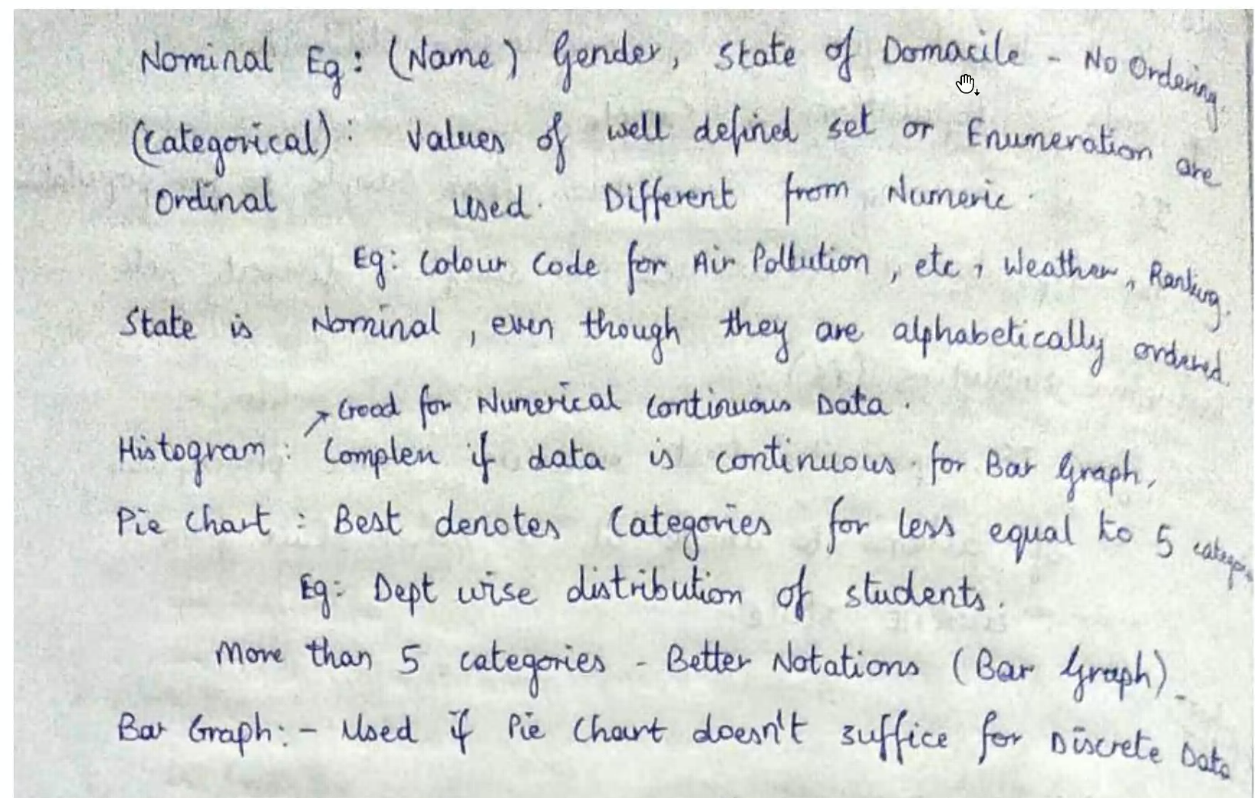 Nominal Eg: (Name) Gender, State of Domacile - No Ordering.
(Categorical): Values of well defined set or Enumeration are
Ordinal used. Different from Numeric.
Eg: Colour Code for Air Pollution, etc, Weather, Ranking.
State is Nominal, even though they are alphabetically ordered.
→ Good for Numerical Continuous Data.
Histogram: Complex if data is continuous for Bar Graph.
Pie Chart: Best denotes Categories for less equal to 5
Eg: Dept wise distribution of students.
More than 5 categories - Better Notations (Bar Graph)
Bar Graph:- Used if Pie Chart doesn't suffice for Discrete Data